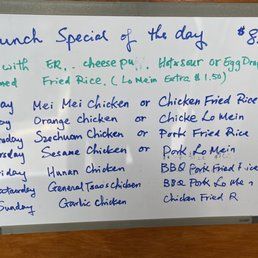 unch Special of the day $8
with ER,. cheese pu.. Hot&sour or Egg Drop
med Fried Rice. (Lo Mein Extra $1.50)
ay Mei Mei Chicken or Chicken Fried Rice
ay Orange chicken or Chicke Lo Mein
sday Szechuan Chicken or Pork Fried Rice
rsday Sesame Chicken or Pork Lo Mein
riday Hunan Chicken BBQ Pork Fried Rice
aturday General Tsao's Chicken BBQ Pork Lo Mein
Sunday Garlic Chicken Chicken Fried R